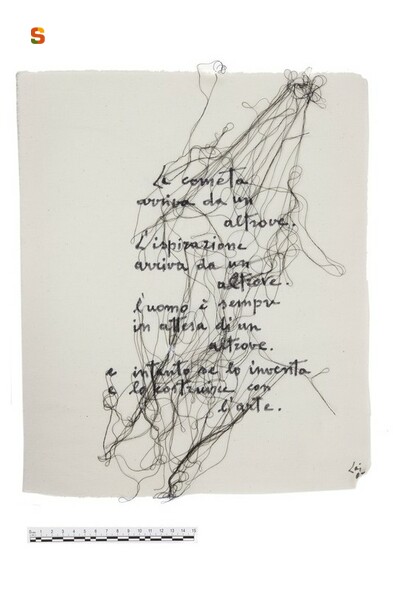 S
La cometa
arriva da un
altrove.
L'ispirazione
arriva da un
altrove.
l'uomo è sempre
in attesa di un
altrove.
e intanto se lo inventa
e lo costruisce con
l'arte.